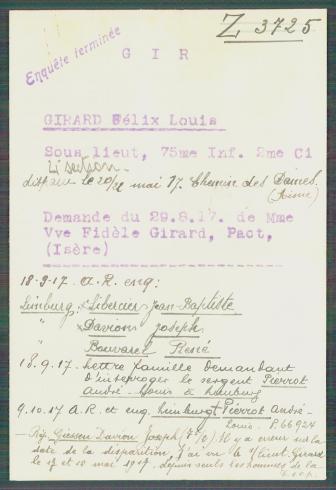 Z 3725
Enquête terminée
G I R
GIRARD Félix Louis
Sous lieut, 75me Inf. 2me Ci
section
disparu le 20/21 mai 17. Chemin des Dames.
(Aisne)
Demande du 29.8.17. de Mme
Vve Fidèle Girard, Pact,
(Isère)
18-9-17. A.R. enq:
Limburg. Libercier Jean-Baptiste
" Davion Joseph
" Bouvarel René
18.9.17. Lettre famille demandant
d'interroger le sergent Pierrot
André Louis à Limburg
9.10.17 A.R. et enq. Limburg Pierrot André-
Louis. P.66924
Rép. Giessen Davion Joseph. Il y a erreur sur la
date de la disparition, j'ai vu le s/lieut. Girard
le 17 et 18 mai 1917, depuis seuls les hommes de la